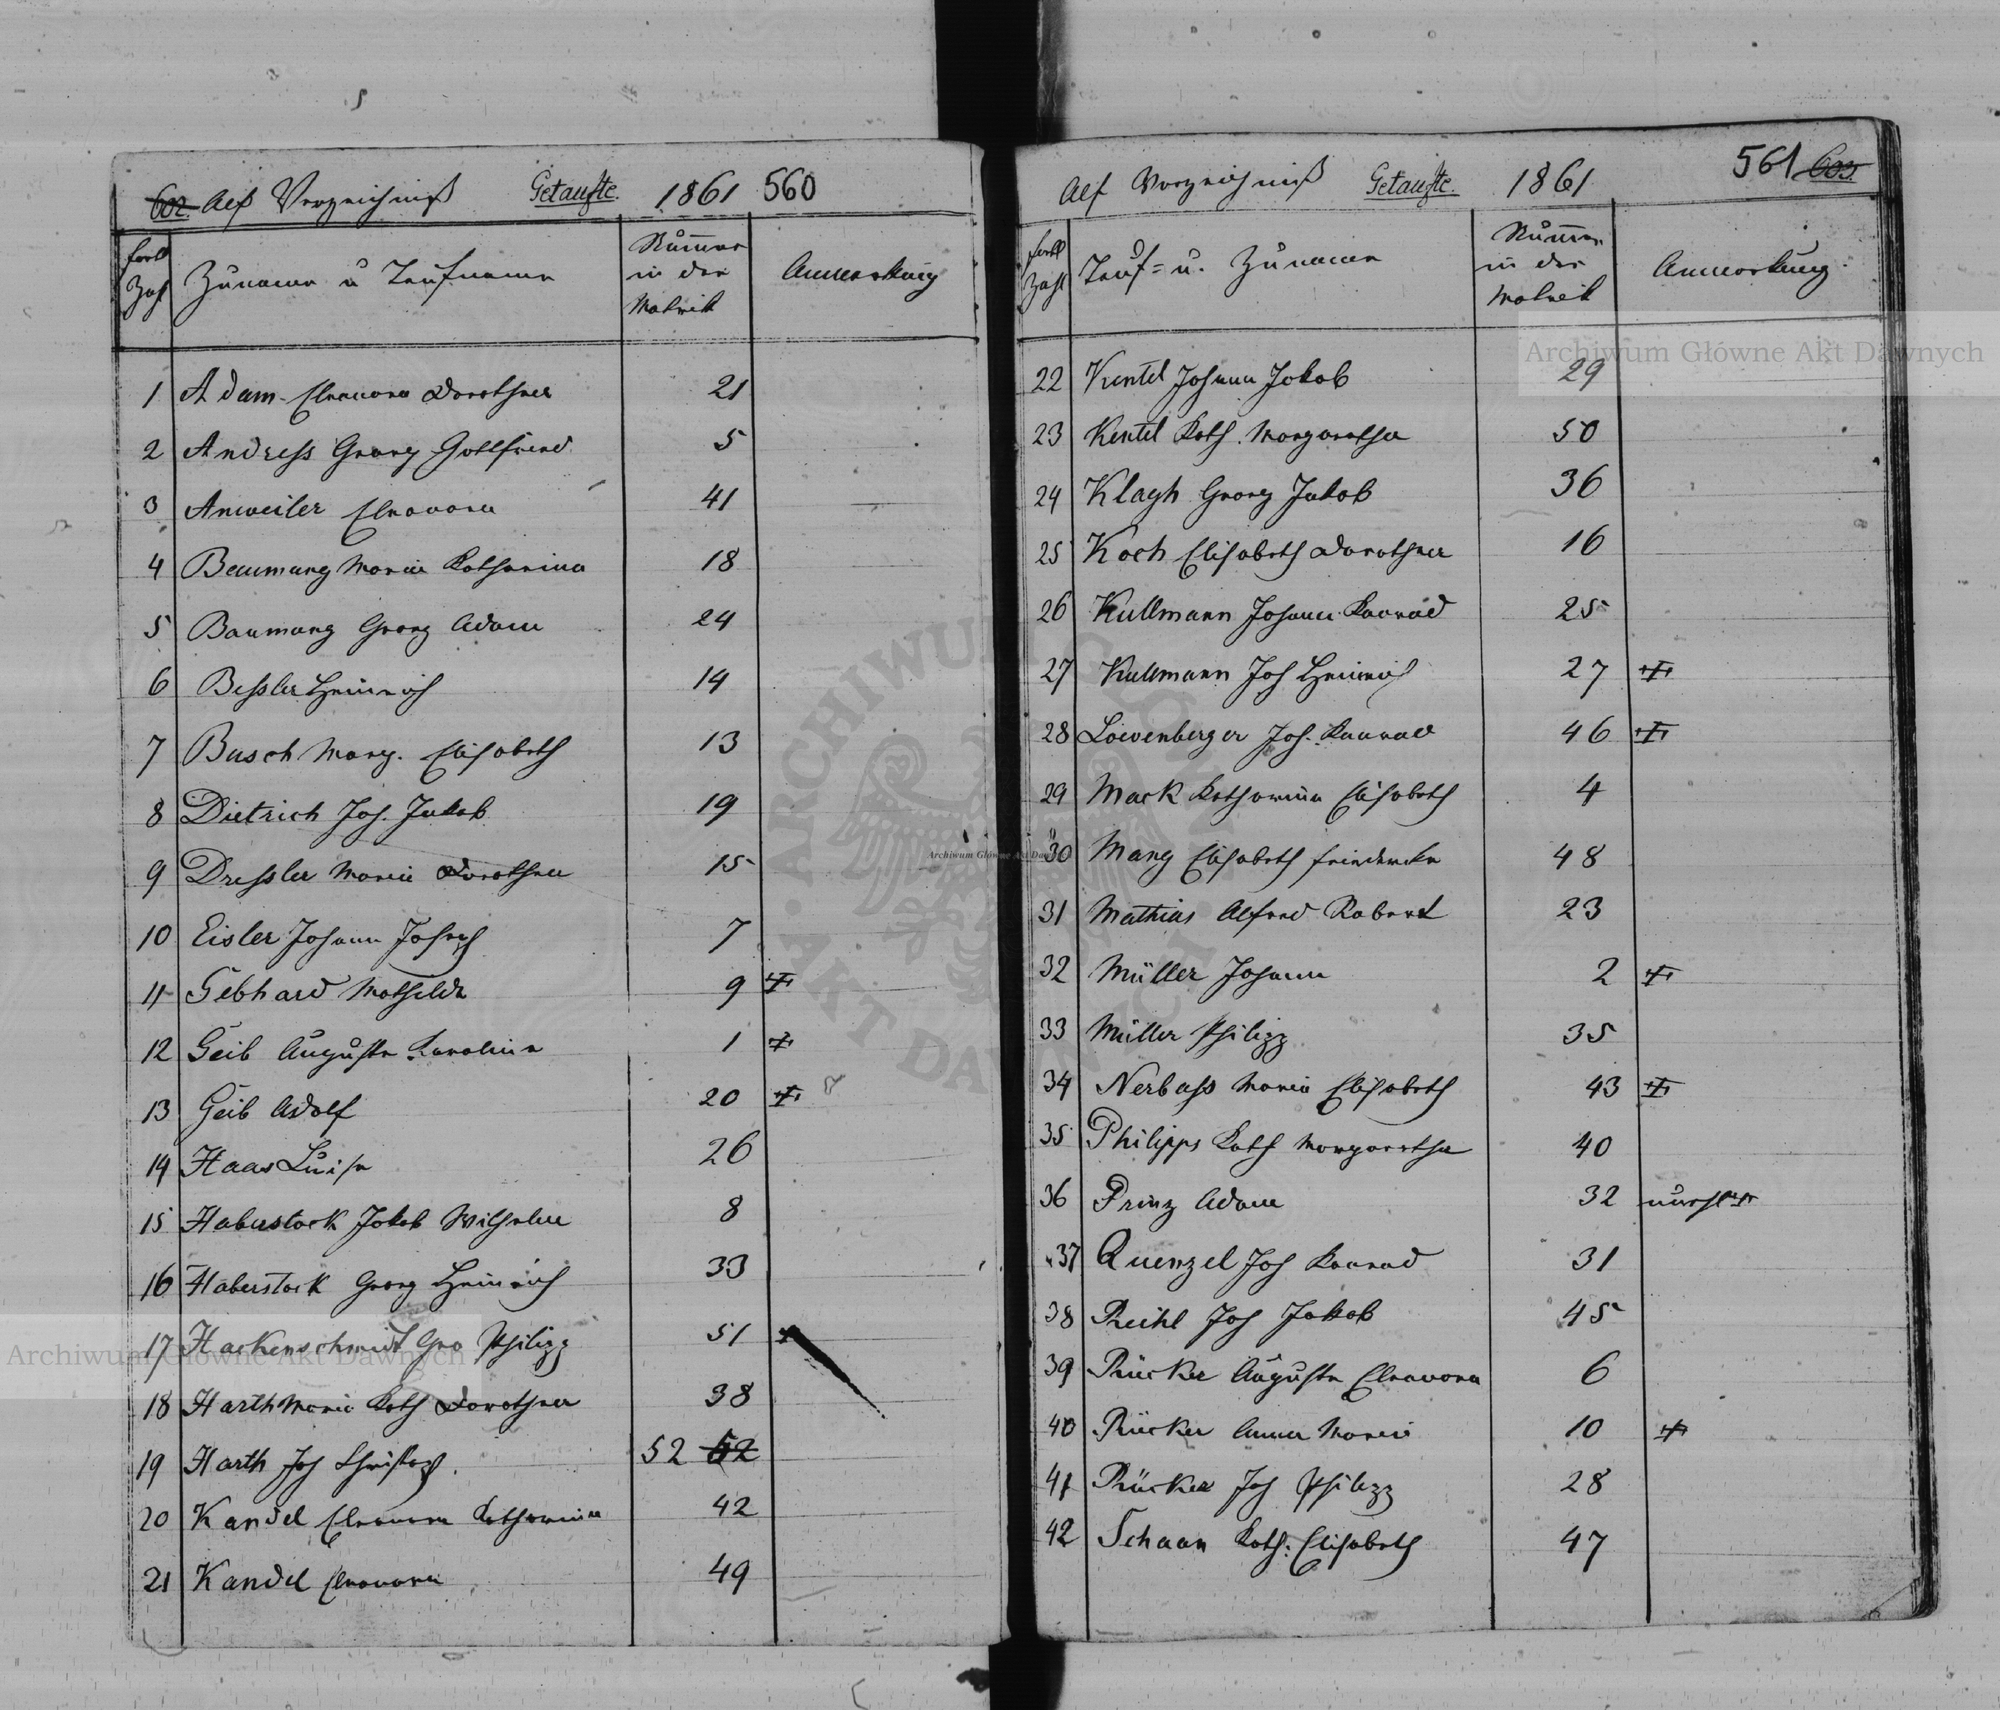 602. Alf Verzeichniß Getaufte. 1861 560
fortl Zahl
Zuname u Taufname
Numer in der Matrik
Anmerkung
1 Adam Eleonora Dorothea 21
2 Andress Georg Gottfried 5
3 Anweiler Eleonora 41
4 Baumang Maria Katharina 18
5 Baumang Georg Adam 24
6 Bessler Heinrich 14
7 Busch Marg. Elisabeth 13
8 Dietrich Joh. Jakob 19
9 Dressler Maria Dorothea 15
10 Eisler Johann Joseph 7
11 Gebhard Mathilde 9 +
12 Geib Auguste Karolina 1 +
13 Geib Adolf 20 +
14 Haas Luise 26
15 Haberstock Jakob Wilhelm 8
16 Haberstock Georg Heinrich 33
17 Hackenschmidt Geo Philipp 51 +
18 Harth Maria Kath Dorothea 38
19 Harth Joh Christoph. 52 52
20 Kandel Eleonora Katharina 42
21 Kandel Eleonora 49
Alf Verzeichniß Getaufte. 1861 561 603.
fortl Zahl
Tauf= u. Zuname
Numer in der Matrik
Anmerkung
22 Kentel Johann Jakob 29
23 Kentel Kath. Margaretha 50
24 Klagh Georg Jakob 36
25 Koch Elisabeth Dorothea 16
26 Kullmann Johann Konrad 25
27 Kullmann Joh Heinrich 27 +
28 Loewenberger Joh. Konrad 46 +
29 Mack Katharina Elisabeth 4
30 Mang Elisabeth Friedericke 48
31 Mathias Alfred Robert 23
32 Müller Johann 2 +
33 Müller Philipp 35
34 Nerbass Maria Elisabeth 43 +
35 Philipps Kath Margaretha 40
36 Prinz Adam 32
37 Quenzel Joh Konrad 31
38 Reihl Joh Jakob 45
39 Rücker Auguste Eleonora 6
40 Rücker Anna Maria 10 +
41 Rücker Joh Philipp 28
42 Schaan Kath. Elisabeth 47
Archiwum Główne Akt Dawnych
Archiwum Główne Akt Dawnych